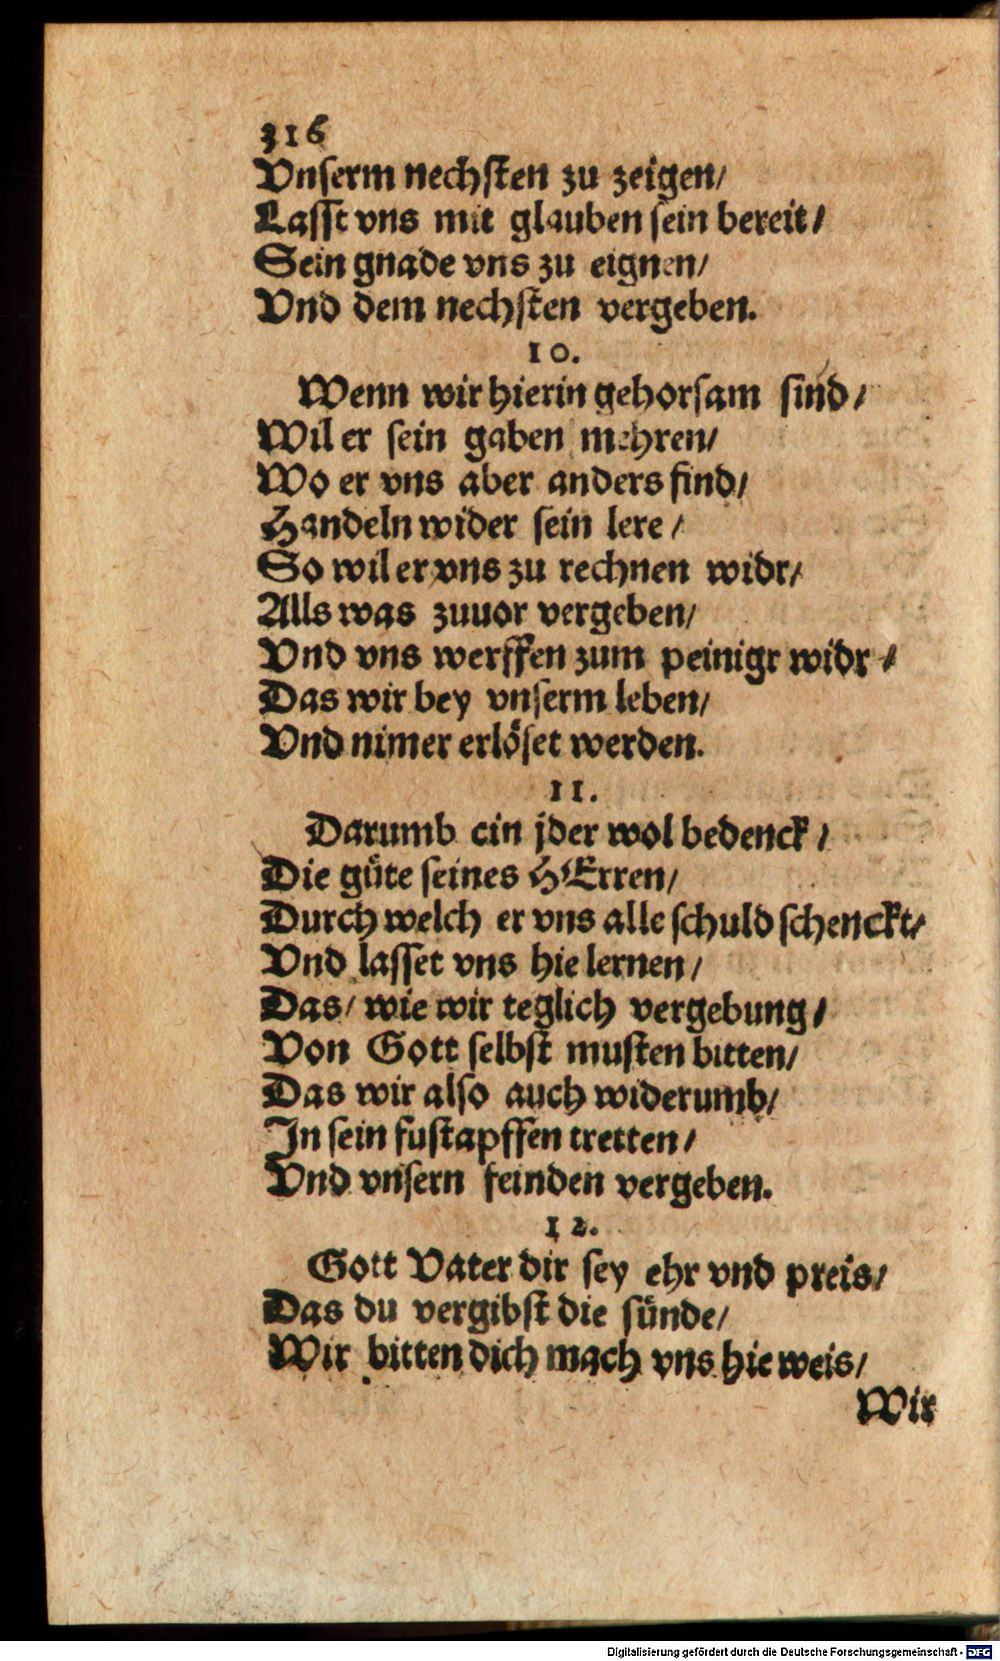 316
Vnserm nechsten zu zeigen/
Lasst vns mit glauben sein bereit/
Sein gnade vns zu eignen/
Vnd dem nechsten vergeben.
10.
Wenn wir hierin gehorsam sind/
Wil er sein gaben mehren/
Wo er vns aber anders find/
Handeln wider sein lere/
So wil er vns zu rechnen widr/
Alls was zuuor vergeben/
Vnd vns werffen zum peinigr widr/
Das wir bey vnserm leben/
Vnd nimer erlöset werden.
11.
Darumb ein jder wol bedenck/
Die güte seines HErren/
Durch welch er vns alle schuld schenckt/
Vnd lasset vns hie lernen/
Das/ wie wir teglich vergebung/
Von Gott selbst musten bitten/
Das wir also auch widerumb/
In sein fustapffen tretten/
Vnd vnsern feinden vergeben.
12.
Gott Vater dir sey ehr vnd preis/
Das du vergibst die sünde/
Wir bitten dich mach vns hie weis/
Wir
Digitalisierung gefördert durch die Deutsche Forschungsgemeinschaft - DFG